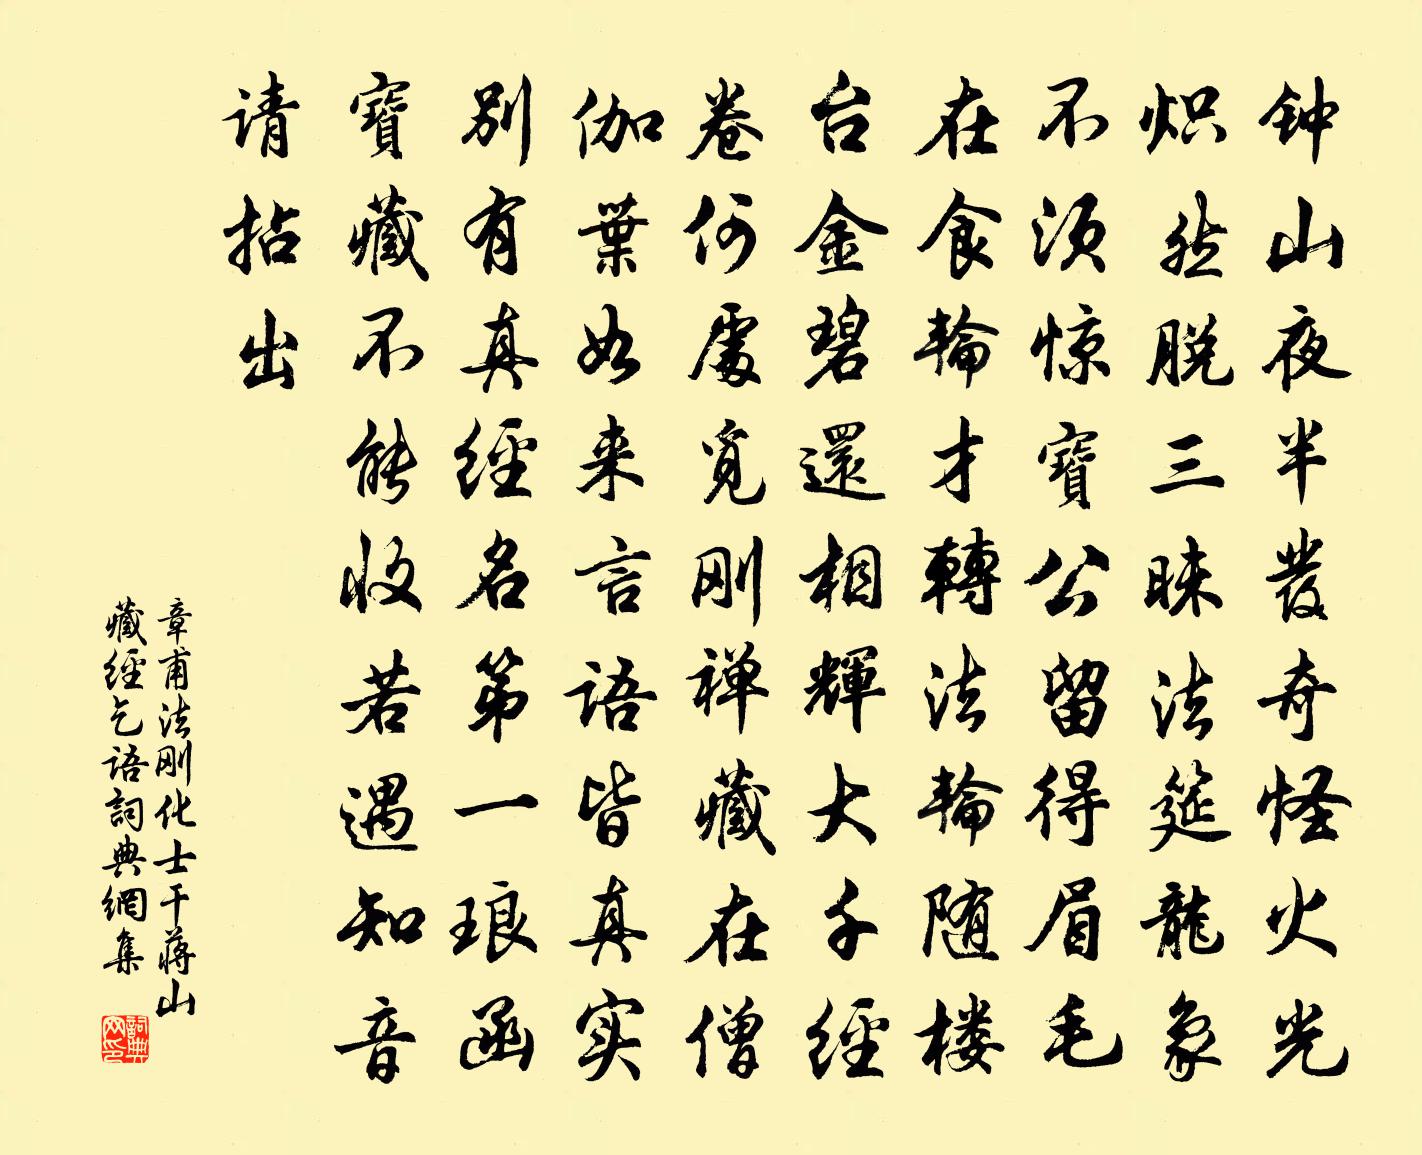 钟山夜半發奇怪火光
炽然脱三昧法筵龍象
不须惊寶公留得眉毛
在食輪才轉法輪随楼
台金碧還相輝大千經
卷何處觅刚禅藏在僧
伽葉如来言語皆真实
别有真經名第一琅函
寶藏不能收若遇知音
请拈出
章甫法刚化士干蒋山
藏經乞語詞典網集
詞典网印